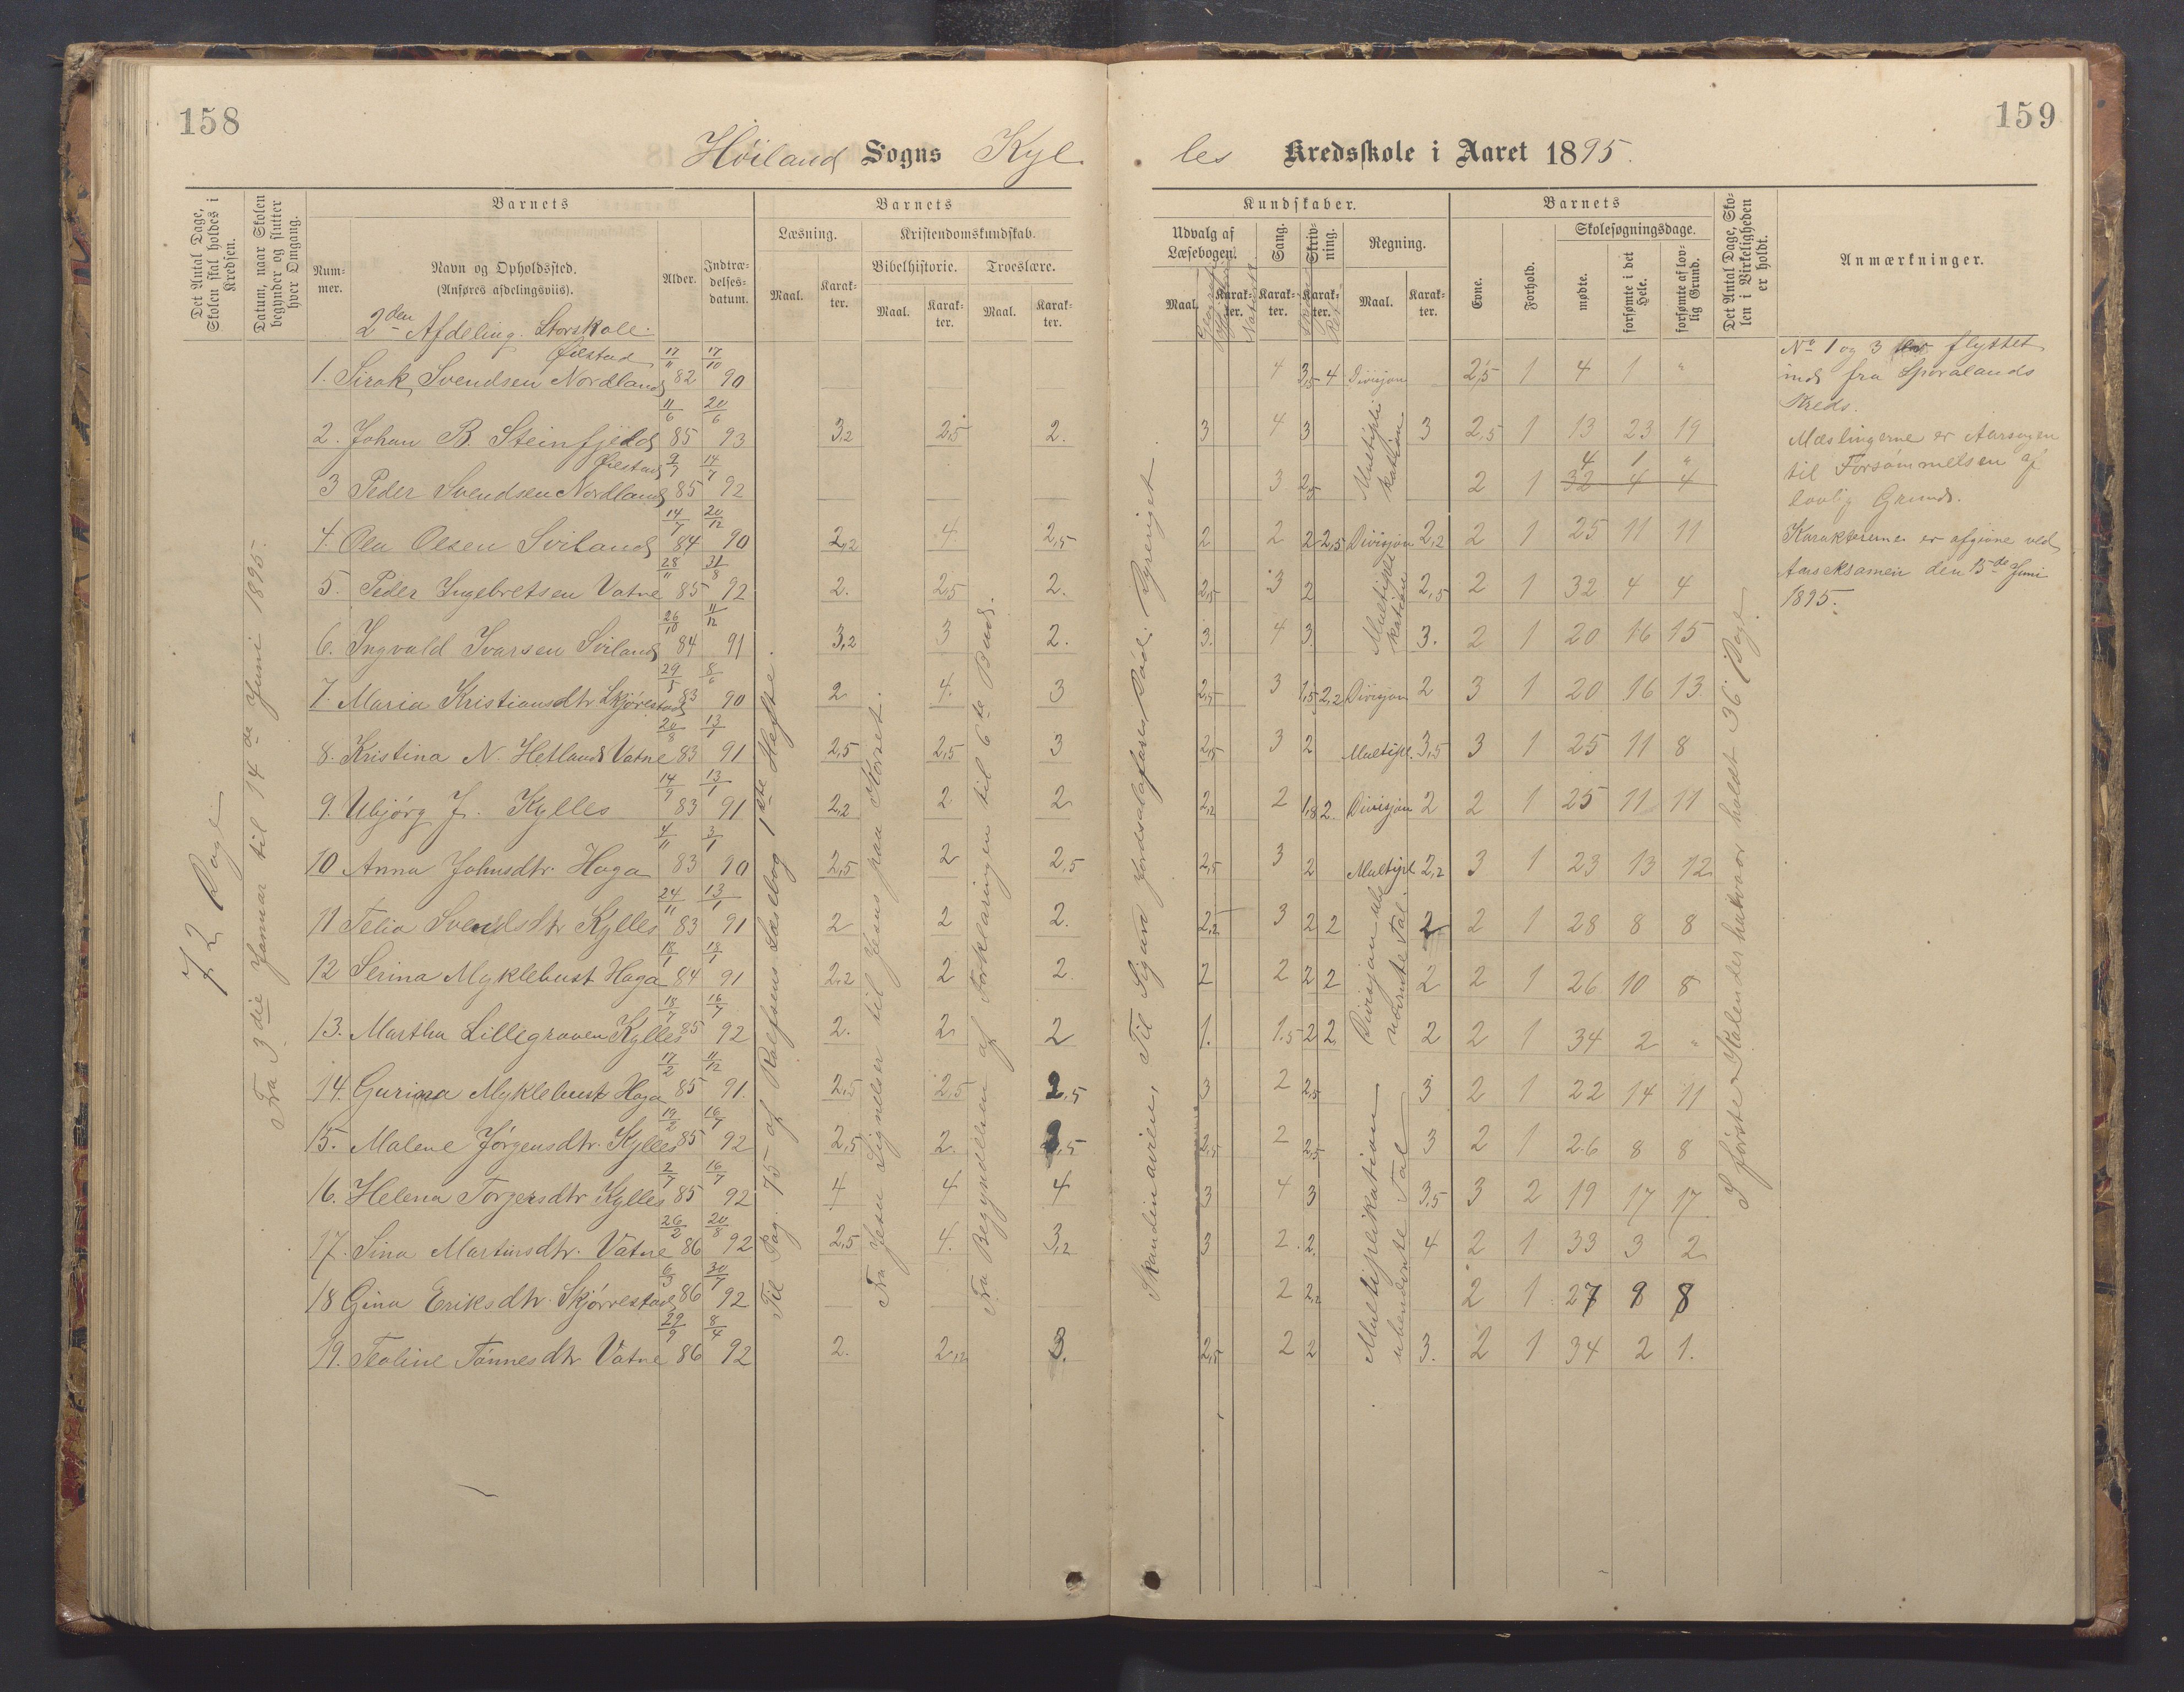 158
159
Höiland Sogns Kyl
les Kredsskole i Aaret 1895.
Det Antal Dage, Skolen skal holdes i Kredsen.
Datum, naar Skolen begynder og slutter hver Omgang.
Barnets
Barnets
Kundskaber.
Barnets
Det Antal Dage, Skolen i Virkeligheden er holdt.
Anmærkninger.
Nummer.
Navn og Opholdssted.
(Anføres afdelingsviis).
Alder.
Indtrædelsesdatum.
Læsning.
Kristendomskundskab.
Bibelhistorie.
Troeslære.
Maal.
Karakter.
Maal.
Karakter.
Maal.
Karakter.
Udvalg af Læsebogen.
Sang.
Skrivning.
Regning.
Maal.
Karakter.
Karakter.
Karakter.
Maal.
Karakter.
Evne.
Forhold.
Skolesøgningsdage.
mødte.
forsømte i det Hele.
forsømte af lovlig Grund.
2den Afdeling. Storskole.
72 Dage
Fra 3die Januar til 14de Juni 1895.
Til Pag. 75 af Rolfsens Læsebog 1ste Hefte.
Fra Jesu Lignelser til Jesus paa Korset.
Fra Begyndelsen af Forklaringen til 6te Bud.
Skandinavien, Til Sigurd Jorsalafarers Död. Dyreriget.
I første Kalenderhalvaar holdt 36 Dage
1. Sirak Svendsen Nordland Ølestad 17/11 82 17/10 90 4 3,5 4 Divisjon 2,5 1 4 1 "
2. Johan B. Steinfjeld 11/6 85 20/6 93 3,2 2,5 2. 3 4 3 Multiplikation 3 2,5 1 13 23 19
3 Peder Svendsen Nordland Ølestad 9/7 85 14/7 92 3 2,5 2 1 4 1 "
32 4 4
4. Ola Olsen Sviland 14/7 84 20/12 90 2,2 4. 2,5 2 2 2 2,5 Divisjon 2,2 2 1 25 11 11
5. Peder Ingebretsen Vatne 28/11 85 31/8 92 2. 2,5 2. 2,5 3 2 Multiplikation 2,5 2 1 32 4 4
6. Ingvald Ivarsen Sviland 26/10 84 11/12 91 3,2 3 2. 3. 4 3. 3. 2 1 20 16 15
7. Maria Kristiansdtr. Skjörestad 29/5 83 8/6 90 2 4. 3 2,5 3 1,5 2,2 Divisjon 2 3 1 20 16 13
8. Kristina N. Hetland Vatne 20/8 83 13/1 91 2,5 2,5 3 2,5 3 2 Multipl. 3,5 3 1 25 11 8
9. Ubjörg J. Kylles 14/9 83 13/1 91 2,2 2 2 2,2 2 1,8 2. Divisjon 2 2 1 25 11 11
10 Anna Johnsdtr. Haga 4/11 83 3/1 90 2,5 2 2,5 2,5 3 2 Multipl. 2,2 3 1 23 13 12
11 Telia Svendsdtr Kylles 24/11 83 13/1 91 2 2 2. 2,2 3 2 2 2 2 1 28 8 8
12 Serina Myklebust Haga 18/1 84 13/1 91 2,2 2 2. 2 2 2 2 2 2 1 26 10 8
13. Martha Lillegraven Kylles 18/7 85 16/7 92 2. 2 2 1. 1.5 2 2 2 2 1 34 2 "
Divisjon ubenævnte Tal
14. Gurina Myklebust Haga 17/2 85 11/12 91. 2,5 2,5 2,5 3 2 2,5 3 2 1 22 14 11
15. Malene Jörgensdtr. Kylles 19/2 85 16/7 92 2,5 2. 2,5 2,5 2 2,5 3 2 1 26 8 8
16. Helena Torgersdtr Kylles 2/7 85 16/7 92 4 4 4 3 4 3 3,5 3 2 19 17 17
17. Sina Martinsdtr. Vatne 26/2 86 20/8 92 2,5 4. 3,2 3 2. 2. 4 2 1 33 3 2
18 Gina Eriksdtr. Skjörrestad 6/3 86 30/7 92 2 2,2 2 1 27 9 8
19. Teoline Tönnesdtr Vatne 29/9 86 8/4 92 2. 2,2 3. 2,5 2 2 3. 2 1 34 2 1.
Multiplikation ubenævnte Tal
No 1 og 3 flyttet
ind fra Sporalands
Kreds.
Mæslingerne er Aarsagen
til Forsömmelsen af
lovlig Grund.
Karaktererne er afgivne ved
Aarseksamen den 15de Juni
1895.